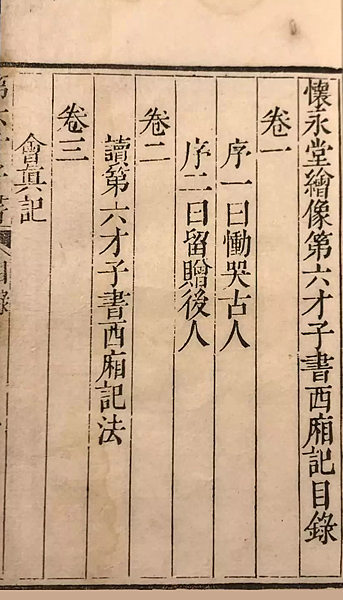 懷永堂繪像第六才子書西廂記目錄
卷一
序一曰慟哭古人
序二曰留贈後人
卷二
讀第六才子書西廂記法
卷三
會眞記
第六才子書 目錄